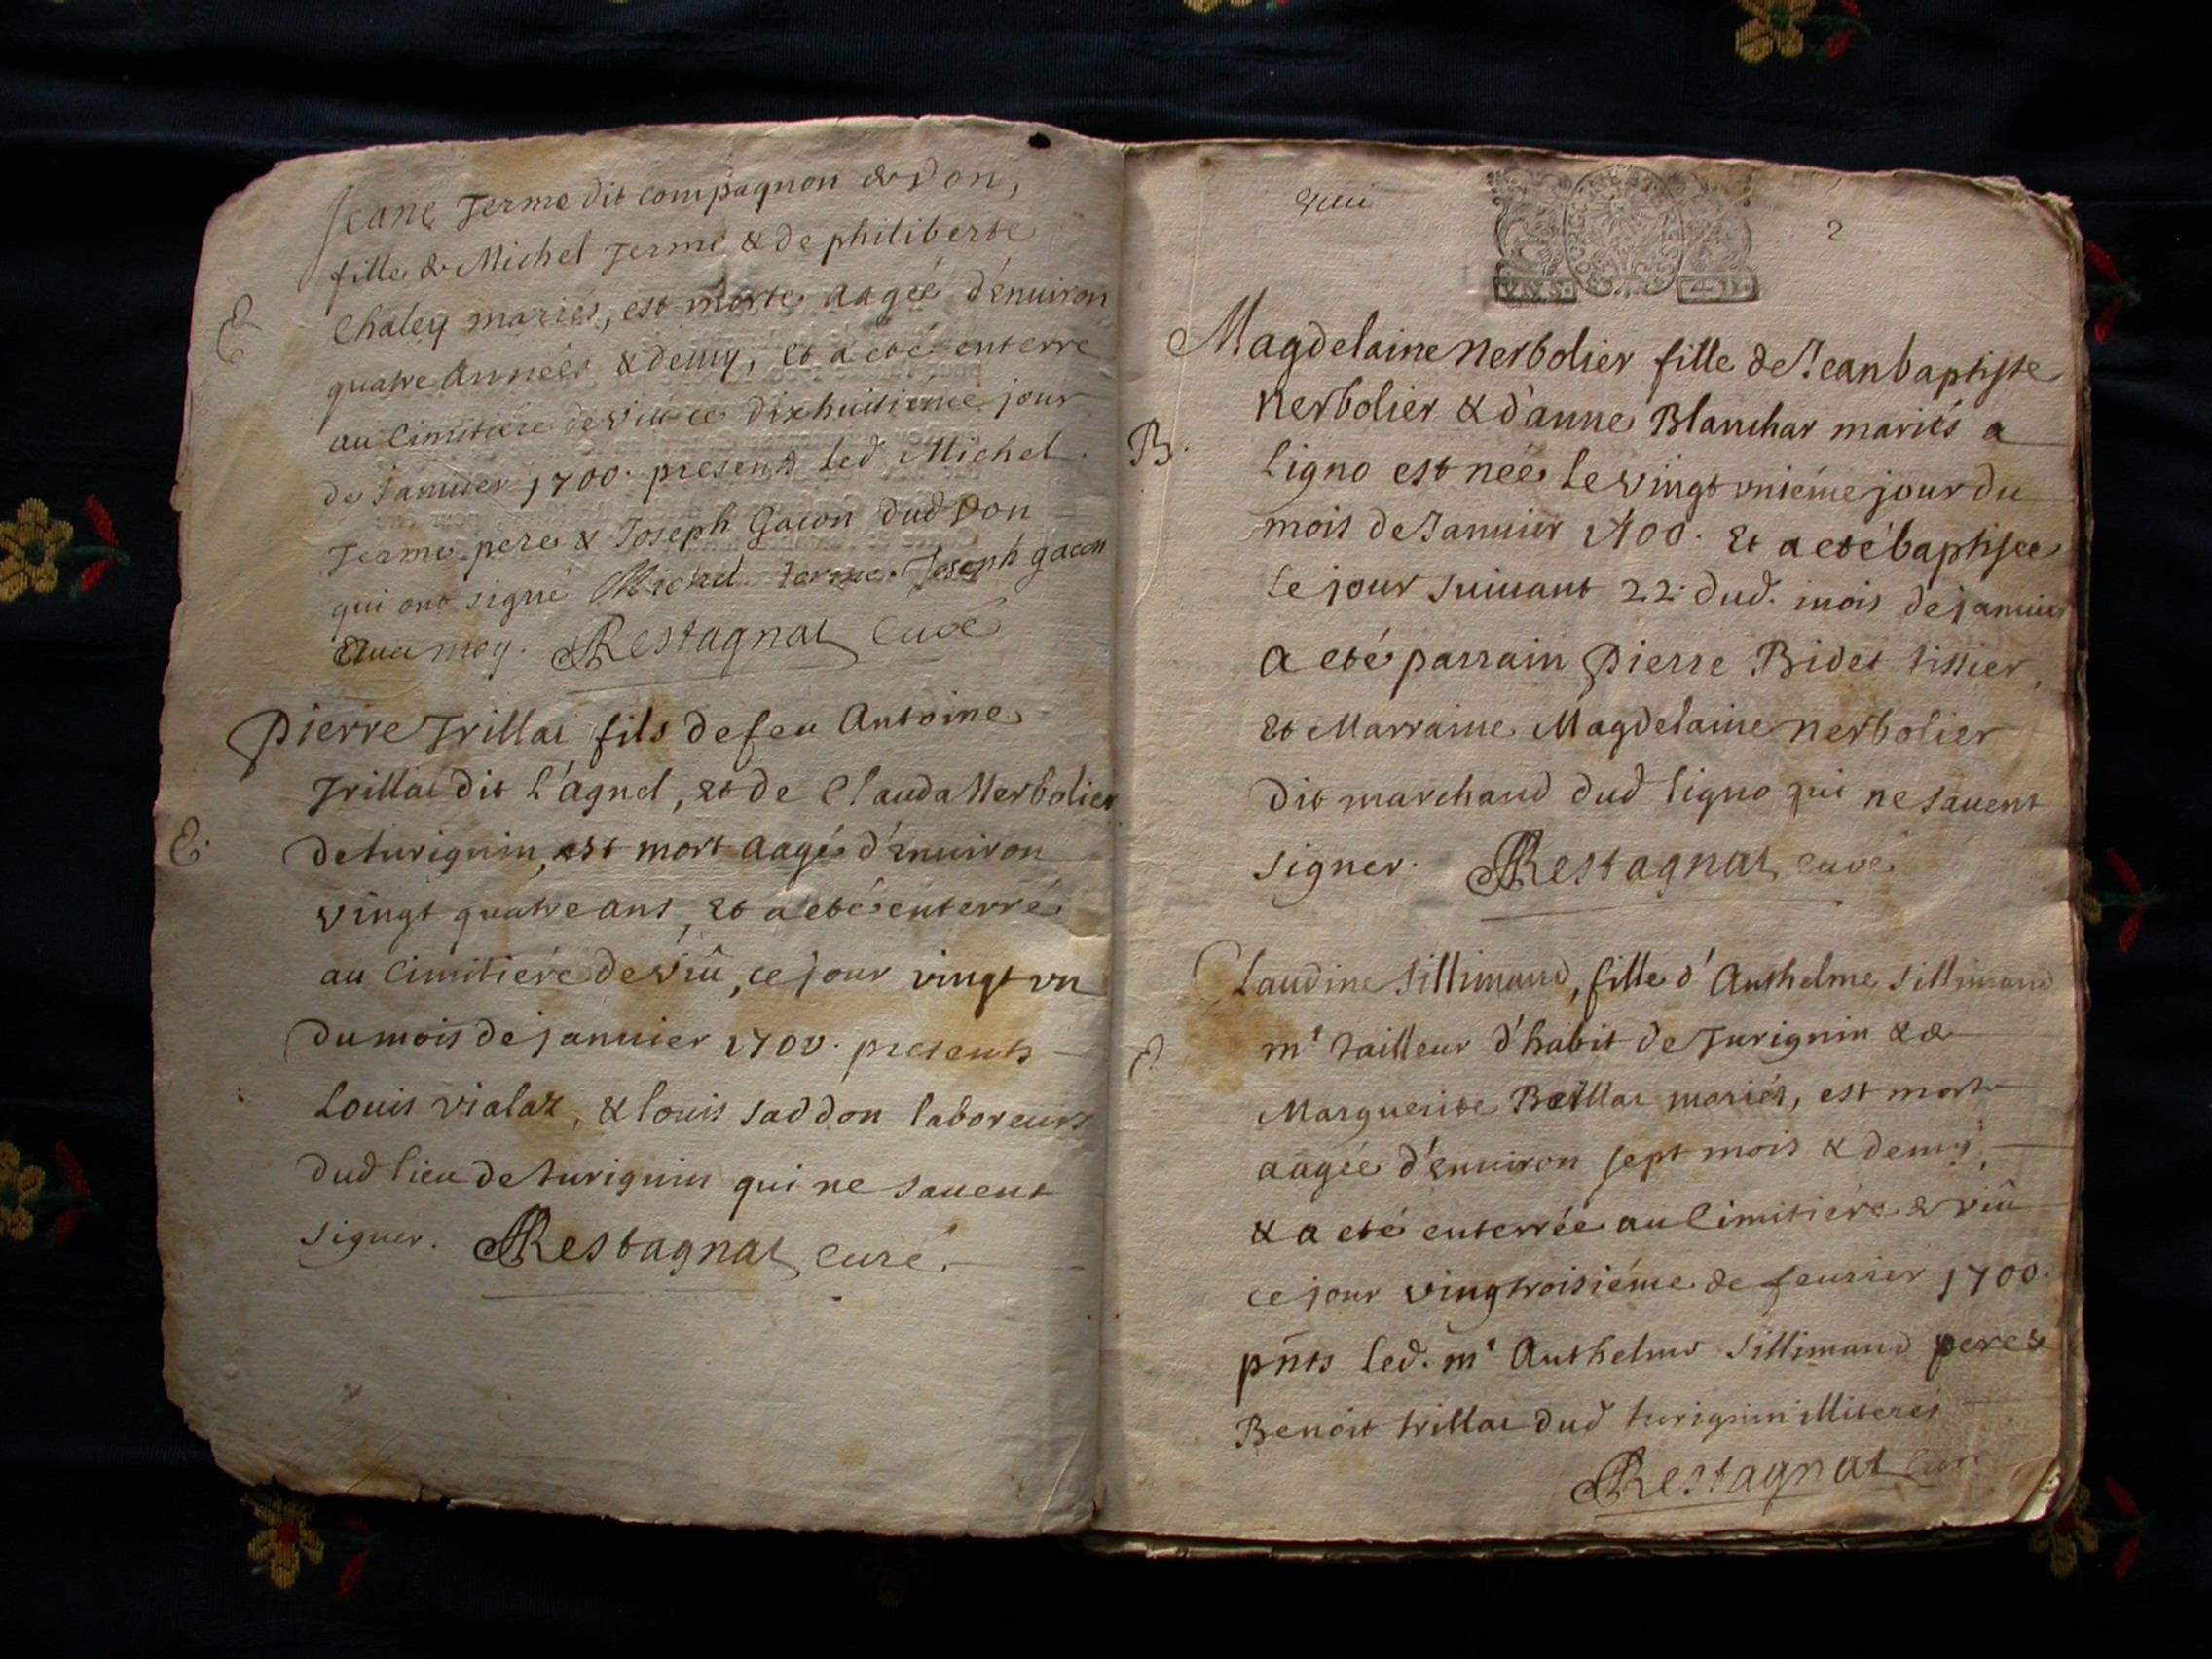 Jeane Terme dit compagnon de Don,
fille de Michel Terme & de philiberte
E
Chaley mariés, est morte aagée d'enuiron
quatre Années & demy, et a eté enterre
au Cimitiére de Viû ce dixhuitiéme jour
de Januier 1700. presents led Michel
Terme pere & Joseph Gacon dud Don
qui ont signé Michel terme Joseph gacon
auec moy. Restagnat Curé
Pierre Trillat fils de feu Antoine
Trillat dit l'agnel, et de Clauda Nerbolier
E.
de turignin, est mort aagé d'enuiron
vingt quatre ans, et a eté enterré
au Cimitiére de viû, ce jour vingt vn
du mois de januier 1700. presents
Louis vialat, & louis saddon laboreurs
dud lieu de turignin qui ne sauent
signer. Restagnat curé.
2
VN S. 4. D.
Magdelaine Nerbolier fille de Jean baptiste
Nerbolier & d'anne Blanchar mariés a
B.
ligno est née le vingt vniéme jour du
mois de Januier 1700. Et a eté baptisee
le jour suiuant 22. dud. mois de januier
a eté parrain Pierre Bidet tissier,
et Marraine Magdelaine Nerbolier
dit marchand dud ligno qui ne sauent
signer. Restagnat curé.
Claudine Sillimand, fille d'Anthelme Sillimand
E
mr tailleur d'habit de Turignin & de
Marguerite mariés, est morte
aagée d'enuiron sept mois & demy,
& a eté enterrée au Cimitiére de viû
ce jour vingtroisiéme de feurier 1700.
pnts led. mr Anthelme Sillimand pere &
Benoit trillat dud turignin illiterés
Restagnat Curé